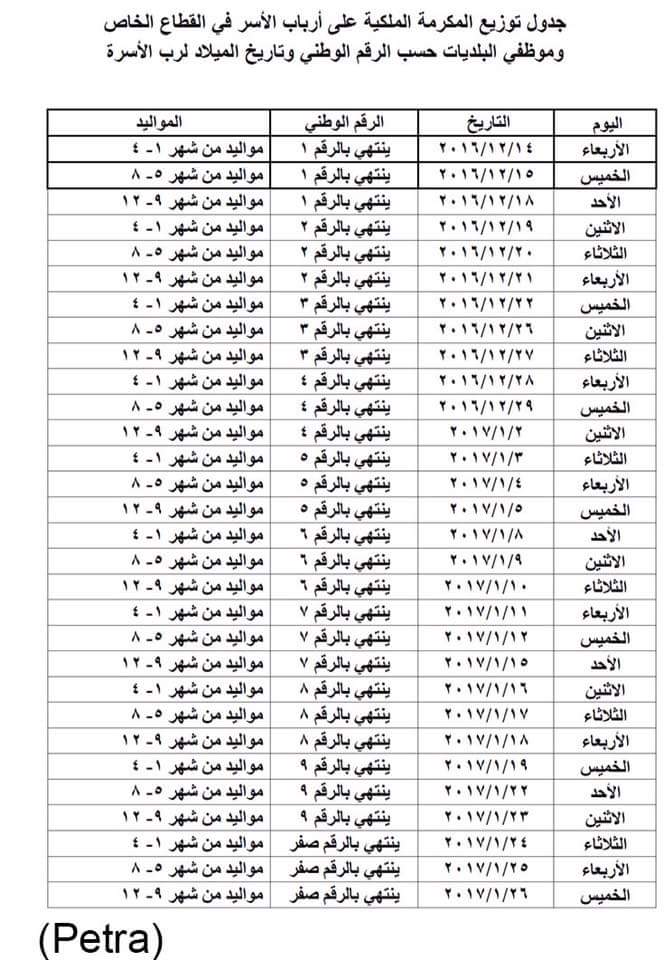 جدول توزيع المكرمة الملكية على أرباب الأسر في القطاع الخاص
وموظفي البلديات حسب الرقم الوطني وتاريخ الميلاد لرب الأسرة
اليوم التاريخ الرقم الوطني المواليد
الأربعاء ٢٠١٦/١٢/١٤ ينتهي بالرقم ١ مواليد من شهر ١- ٤
الخميس ٢٠١٦/١٢/١٥ ينتهي بالرقم ١ مواليد من شهر ٥- ٨
الأحد ٢٠١٦/١٢/١٨ ينتهي بالرقم ١ مواليد من شهر ٩- ١٢
الاثنين ٢٠١٦/١٢/١٩ ينتهي بالرقم ٢ مواليد من شهر ١- ٤
الثلاثاء ٢٠١٦/١٢/٢٠ ينتهي بالرقم ٢ مواليد من شهر ٥- ٨
الأربعاء ٢٠١٦/١٢/٢١ ينتهي بالرقم ٢ مواليد من شهر ٩- ١٢
الخميس ٢٠١٦/١٢/٢٢ ينتهي بالرقم ٣ مواليد من شهر ١- ٤
الاثنين ٢٠١٦/١٢/٢٦ ينتهي بالرقم ٣ مواليد من شهر ٥- ٨
الثلاثاء ٢٠١٦/١٢/٢٧ ينتهي بالرقم ٣ مواليد من شهر ٩- ١٢
الأربعاء ٢٠١٦/١٢/٢٨ ينتهي بالرقم ٤ مواليد من شهر ١- ٤
الخميس ٢٠١٦/١٢/٢٩ ينتهي بالرقم ٤ مواليد من شهر ٥- ٨
الاثنين ٢٠١٧/١/٢ ينتهي بالرقم ٤ مواليد من شهر ٩- ١٢
الثلاثاء ٢٠١٧/١/٣ ينتهي بالرقم ٥ مواليد من شهر ١- ٤
الأربعاء ٢٠١٧/١/٤ ينتهي بالرقم ٥ مواليد من شهر ٥- ٨
الخميس ٢٠١٧/١/٥ ينتهي بالرقم ٥ مواليد من شهر ٩- ١٢
الأحد ٢٠١٧/١/٨ ينتهي بالرقم ٦ مواليد من شهر ١- ٤
الاثنين ٢٠١٧/١/٩ ينتهي بالرقم ٦ مواليد من شهر ٥- ٨
الثلاثاء ٢٠١٧/١/١٠ ينتهي بالرقم ٦ مواليد من شهر ٩- ١٢
الأربعاء ٢٠١٧/١/١١ ينتهي بالرقم ٧ مواليد من شهر ١- ٤
الخميس ٢٠١٧/١/١٢ ينتهي بالرقم ٧ مواليد من شهر ٥- ٨
الأحد ٢٠١٧/١/١٥ ينتهي بالرقم ٧ مواليد من شهر ٩- ١٢
الاثنين ٢٠١٧/١/١٦ ينتهي بالرقم ٨ مواليد من شهر ١- ٤
الثلاثاء ٢٠١٧/١/١٧ ينتهي بالرقم ٨ مواليد من شهر ٥- ٨
الأربعاء ٢٠١٧/١/١٨ ينتهي بالرقم ٨ مواليد من شهر ٩- ١٢
الخميس ٢٠١٧/١/١٩ ينتهي بالرقم ٩ مواليد من شهر ١- ٤
الأحد ٢٠١٧/١/٢٢ ينتهي بالرقم ٩ مواليد من شهر ٥- ٨
الاثنين ٢٠١٧/١/٢٣ ينتهي بالرقم ٩ مواليد من شهر ٩- ١٢
الثلاثاء ٢٠١٧/١/٢٤ ينتهي بالرقم صفر مواليد من شهر ١- ٤
الأربعاء ٢٠١٧/١/٢٥ ينتهي بالرقم صفر مواليد من شهر ٥- ٨
الخميس ٢٠١٧/١/٢٦ ينتهي بالرقم صفر مواليد من شهر ٩- ١٢
(Petra)